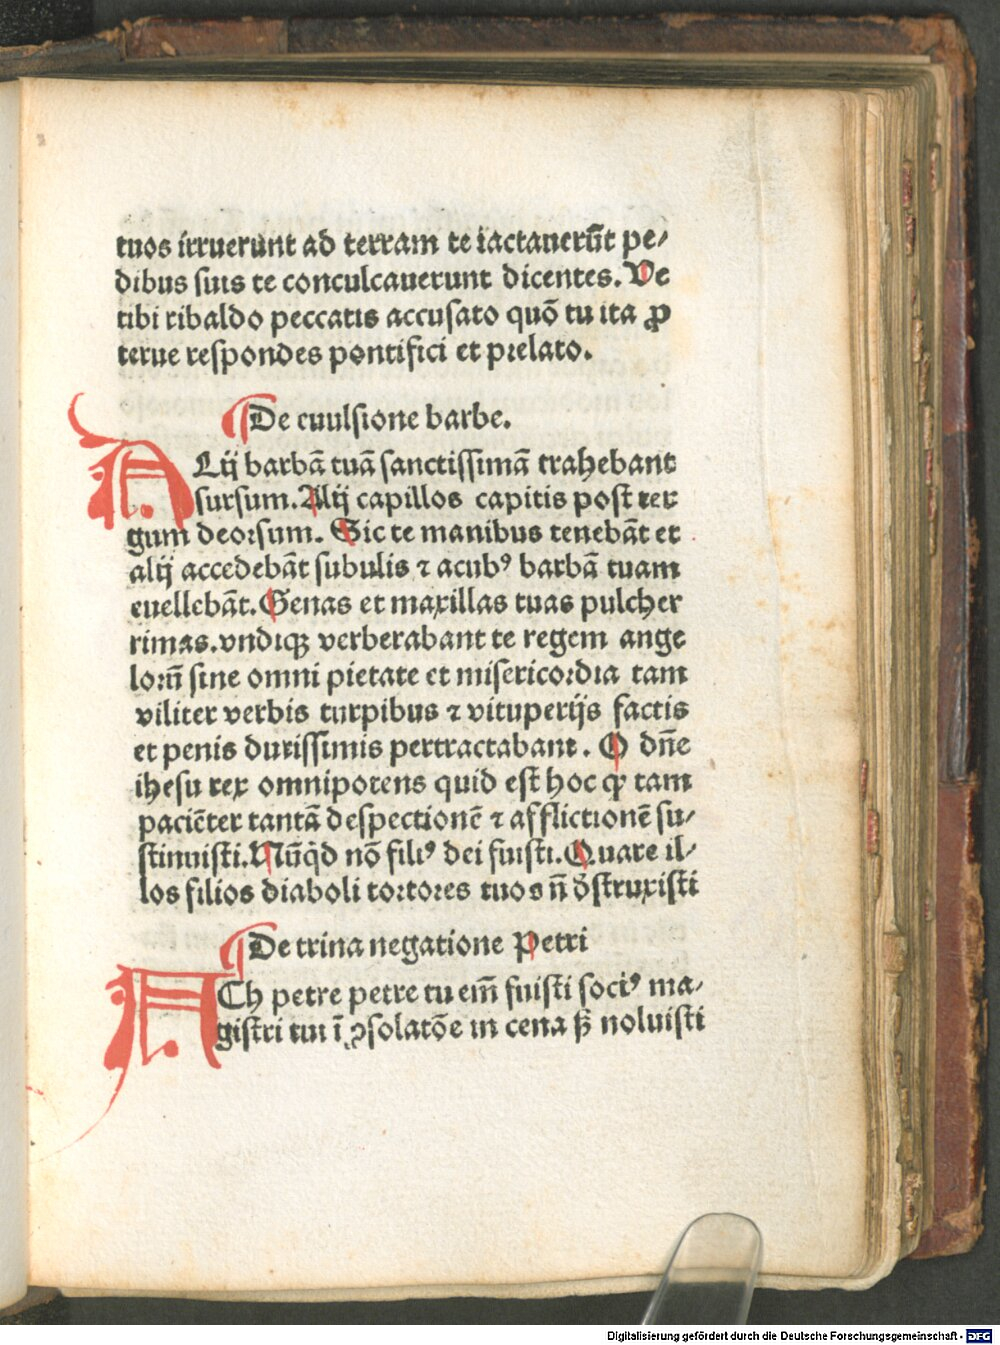 tuos irruerunt ad terram te iactauerūt pe⸗
dibus suis te conculcauerunt dicentes. Ve
tibi ribaldo peccatis accusato quō tu ita ꝓ
terue respondes pontifici et prelato.
¶De euulsione barbe.
ALij barbā tuā sanctissimā trahebant
sursum. Alij capillos capitis post ter
gum deorsum. Sic te manibus tenebāt et
alij accedebāt subulis ⁊ acubꝰ barbā tuam
euellebāt. Genas et maxillas tuas pulcher
rimas. vndiqꝫ verberabant te regem ange
lorū sine omni pietate et misericordia tam
viliter verbis turpibus ⁊ vituperijs factis
et penis durissimis pertractabant. O dn̄e
ihesu rex omnipotens quid est hoc ꝙ tam
paciēter tantā despectionē ⁊ afflictionē su⸗
stinuisti. Nūqd̄ nō filiꝰ dei fuisti. Quare il⸗
los filios diaboli tortores tuos n̄ dstruxisti
¶De trina negatione Petri
ACh petre petre tu em̄ fuisti sociꝰ ma⸗
gistri tui ī ꝯsolatōe in cena sꝫ noluisti
Digitalisierung gefördert durch die Deutsche Forschungsgemeinschaft - DFG